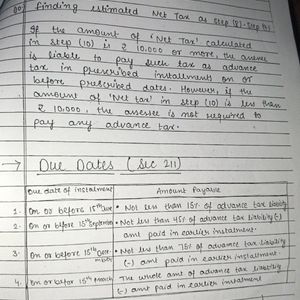 (10) Finding estimated Net Tax as Step (8) - Step (9)
If the amount of 'Net Tax' calculated
in step (10) is ₹ 10,000 or more, the assesse
is liable to pay such tax as advance
tax in prescribed installment on or
before prescribed dates. However, if the
amount of 'Net tax' in step (10) is less than
₹ 10,000, the assesse is not required to
pay any advance tax.
→ Due Dates (Sec 211)
Due date of instalment Amount Payable
1. On or before 15th June • Not less than 15% of advance tax liability
2. On or before 15th September • Not less than 45% of advance tax liability (-)
amt paid in earlier instalment.
3. On or before 15th Dece-
mber • Not less than 75% of advance tax liability
(-) amt paid in earlier instalment.
4. On or before 15th March The whole amt of advance tax liability
(-) amt paid in earlier instalment